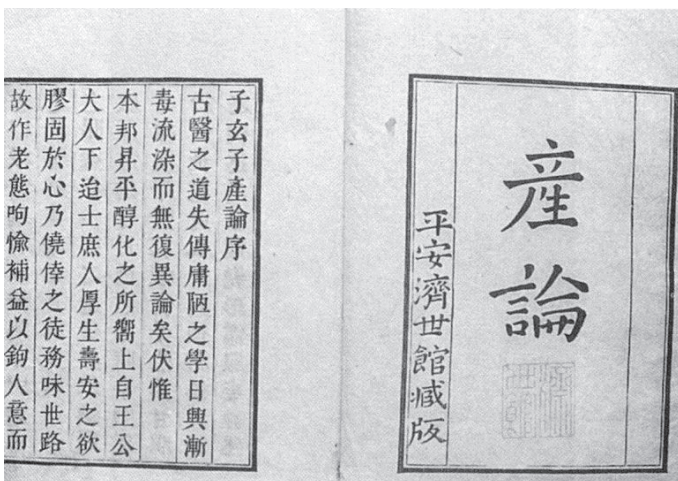 産論
平安濟世館藏版
子玄子產論序
古醫之道失傳庸陋之學日興漸
毒流染而無復異論矣伏惟
本邦昇平醇化之所嚮上自王公
大人下迨士庶人厚生壽安之欲
膠固於心乃僥倖之徒務味世路
故作老態呴愉補益以鉤人意而